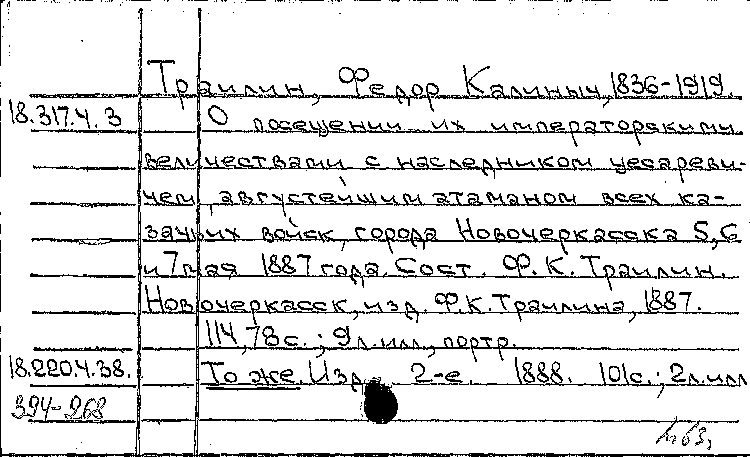 Траилин, Федор Калиныч, 1836-1919.
18.317.4.3 О посещении их императорскими
величествами с наследником цесареви-
чем, августейшим атаманом всех ка-
зачьих войск, города Новочеркасска 5,6
и 7 мая 1887 года. Сост. Ф. К. Траилин.
Новочеркасск, изд. Ф.К. Траилина, 1887.
114,78 с.; 9 л. илл., портр.
18.220.4.38. То же. Изд. 2-е. 1888. 101 с.; 2 л. илл
394-268